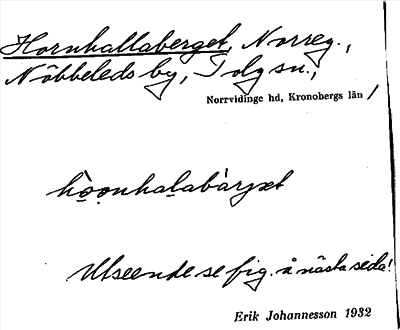 Hornhallaberget, Norreg.,
Nöbbeleds by, Tolg sn.,
Norrvidinge hd, Kronobergs län /
hò̱o̱nhaḻabàrjət
Utseende se fig. å nästa sida!
Erik Johannesson 1932